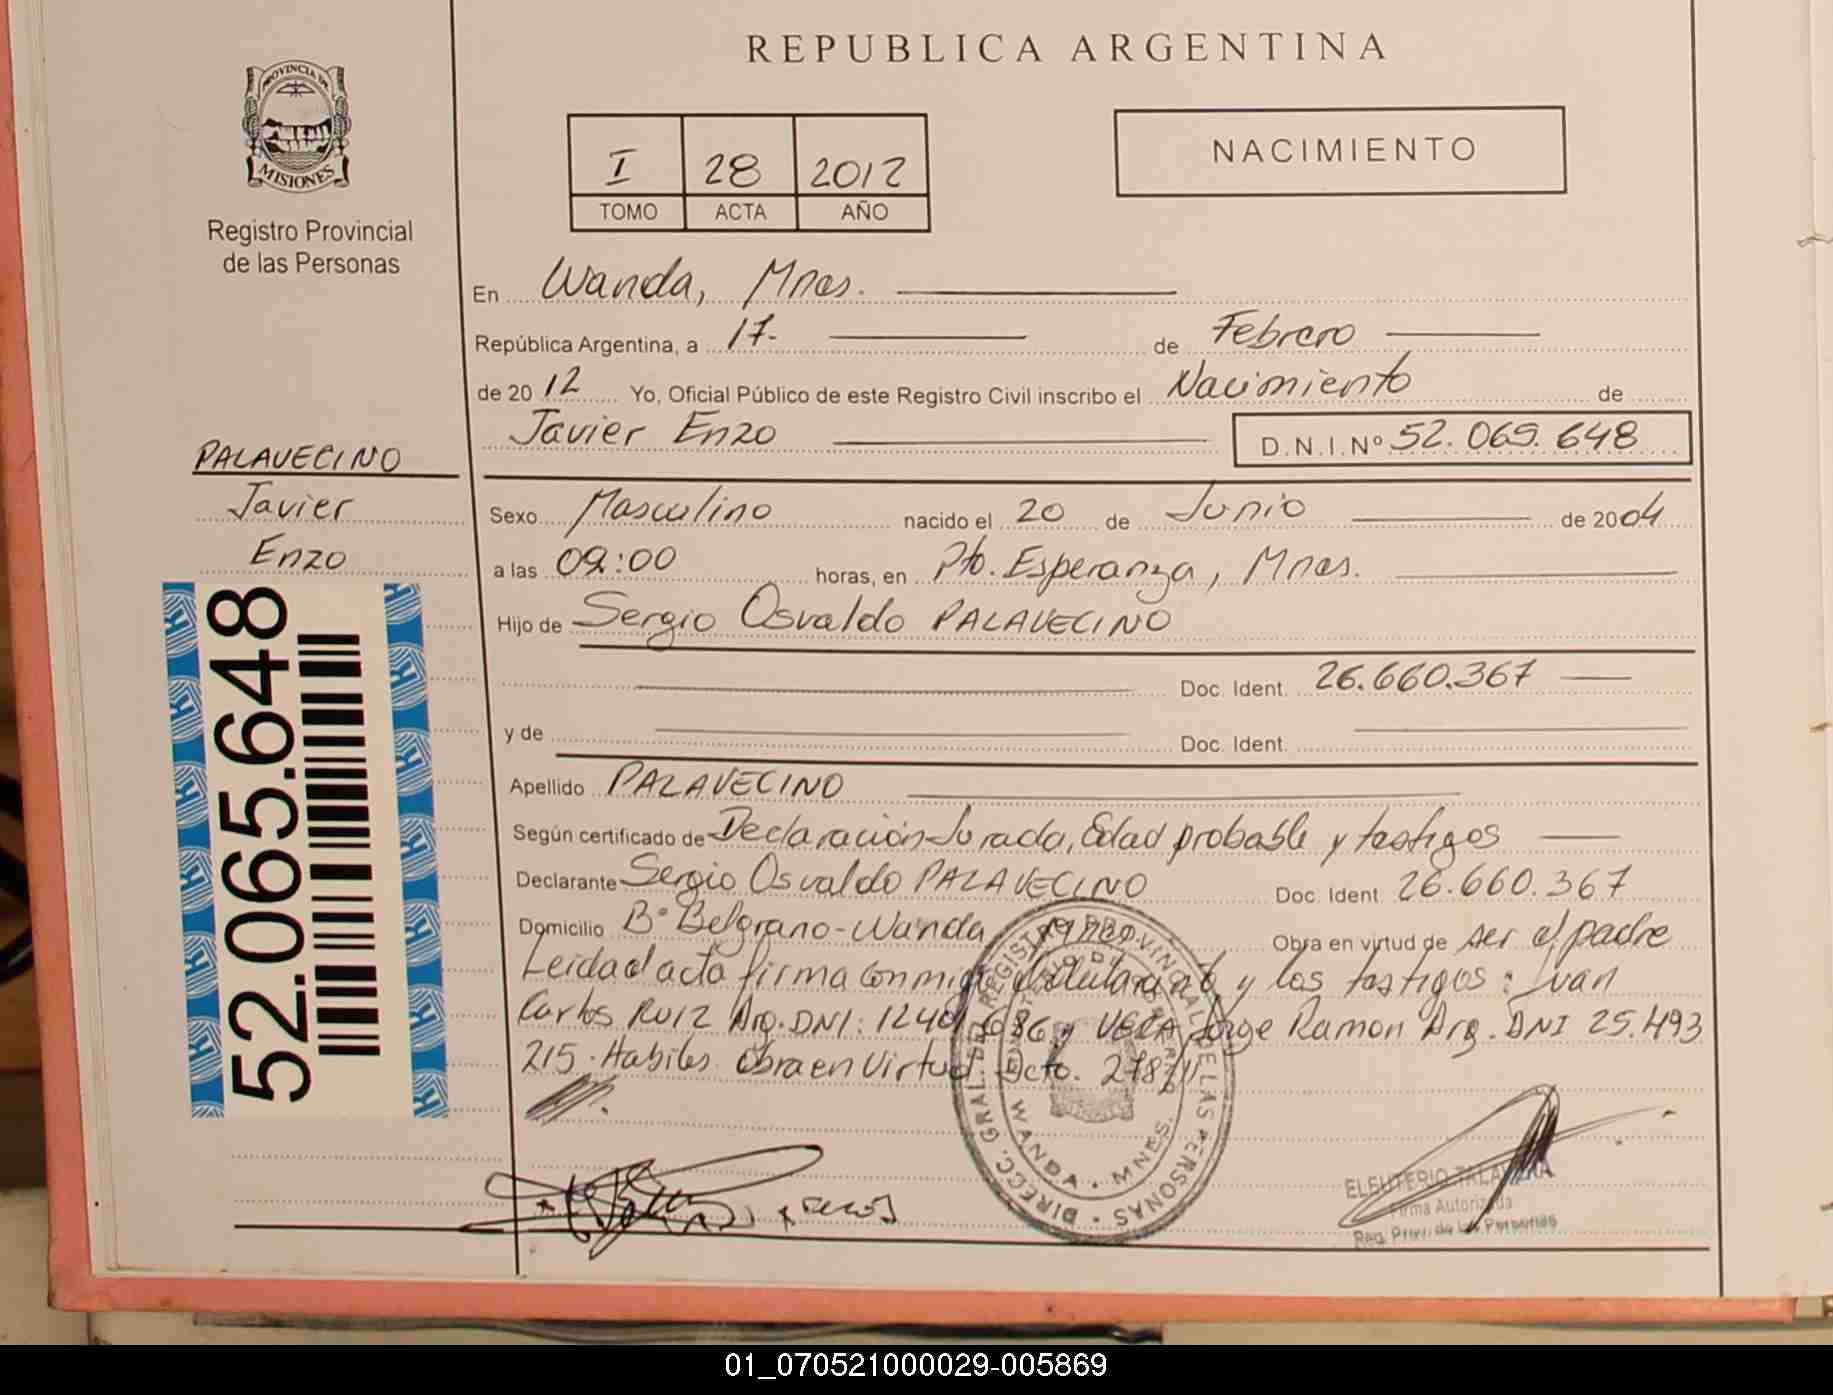 REPUBLICA ARGENTINA
PROVINCIA DE
MISIONES
Registro Provincial
de las Personas
I 28 2012
TOMO ACTA AÑO
NACIMIENTO
En Wanda, Mnes.
República Argentina, a 17- de Febrero
de 2012 Yo, Oficial Público de este Registro Civil inscribo el Nacimiento de
Javier Enzo D.N.I.Nº 52.065.648
PALAVECINO
Javier
Enzo
52.065.648
Sexo Masculino nacido el 20 de Junio de 2004
a las 09:00 horas, en Pto. Esperanza, Mnes.
Hijo de Sergio Osvaldo PALAVECINO
Doc. Ident. 26.660.367
y de Doc. Ident.
Apellido PALAVECINO
Según certificado de Declaración Jurada, Edad probable y testigos
Declarante Sergio Osvaldo PALAVECINO Doc. Ident. 26.660.367
Domicilio Bº Belgrano - Wanda, Obra en virtud de ser el padre
Leida el acta firma conmigo el declarante y los testigos: Juan
Carlos RUIZ Arg. DNI: y VERA Jorge Ramon Arg. DNI 25.493
215. Habiles. Obra en Virtud Dcto.
DIRECC. GRAL. DEL REGISTRO PROVINCIAL DE LAS PERSONAS
WANDA - MNES.
ELEUTERIO TALAVERA
Firma Autorizada
Reg. Prov. de las Personas
01_070521000029-005869